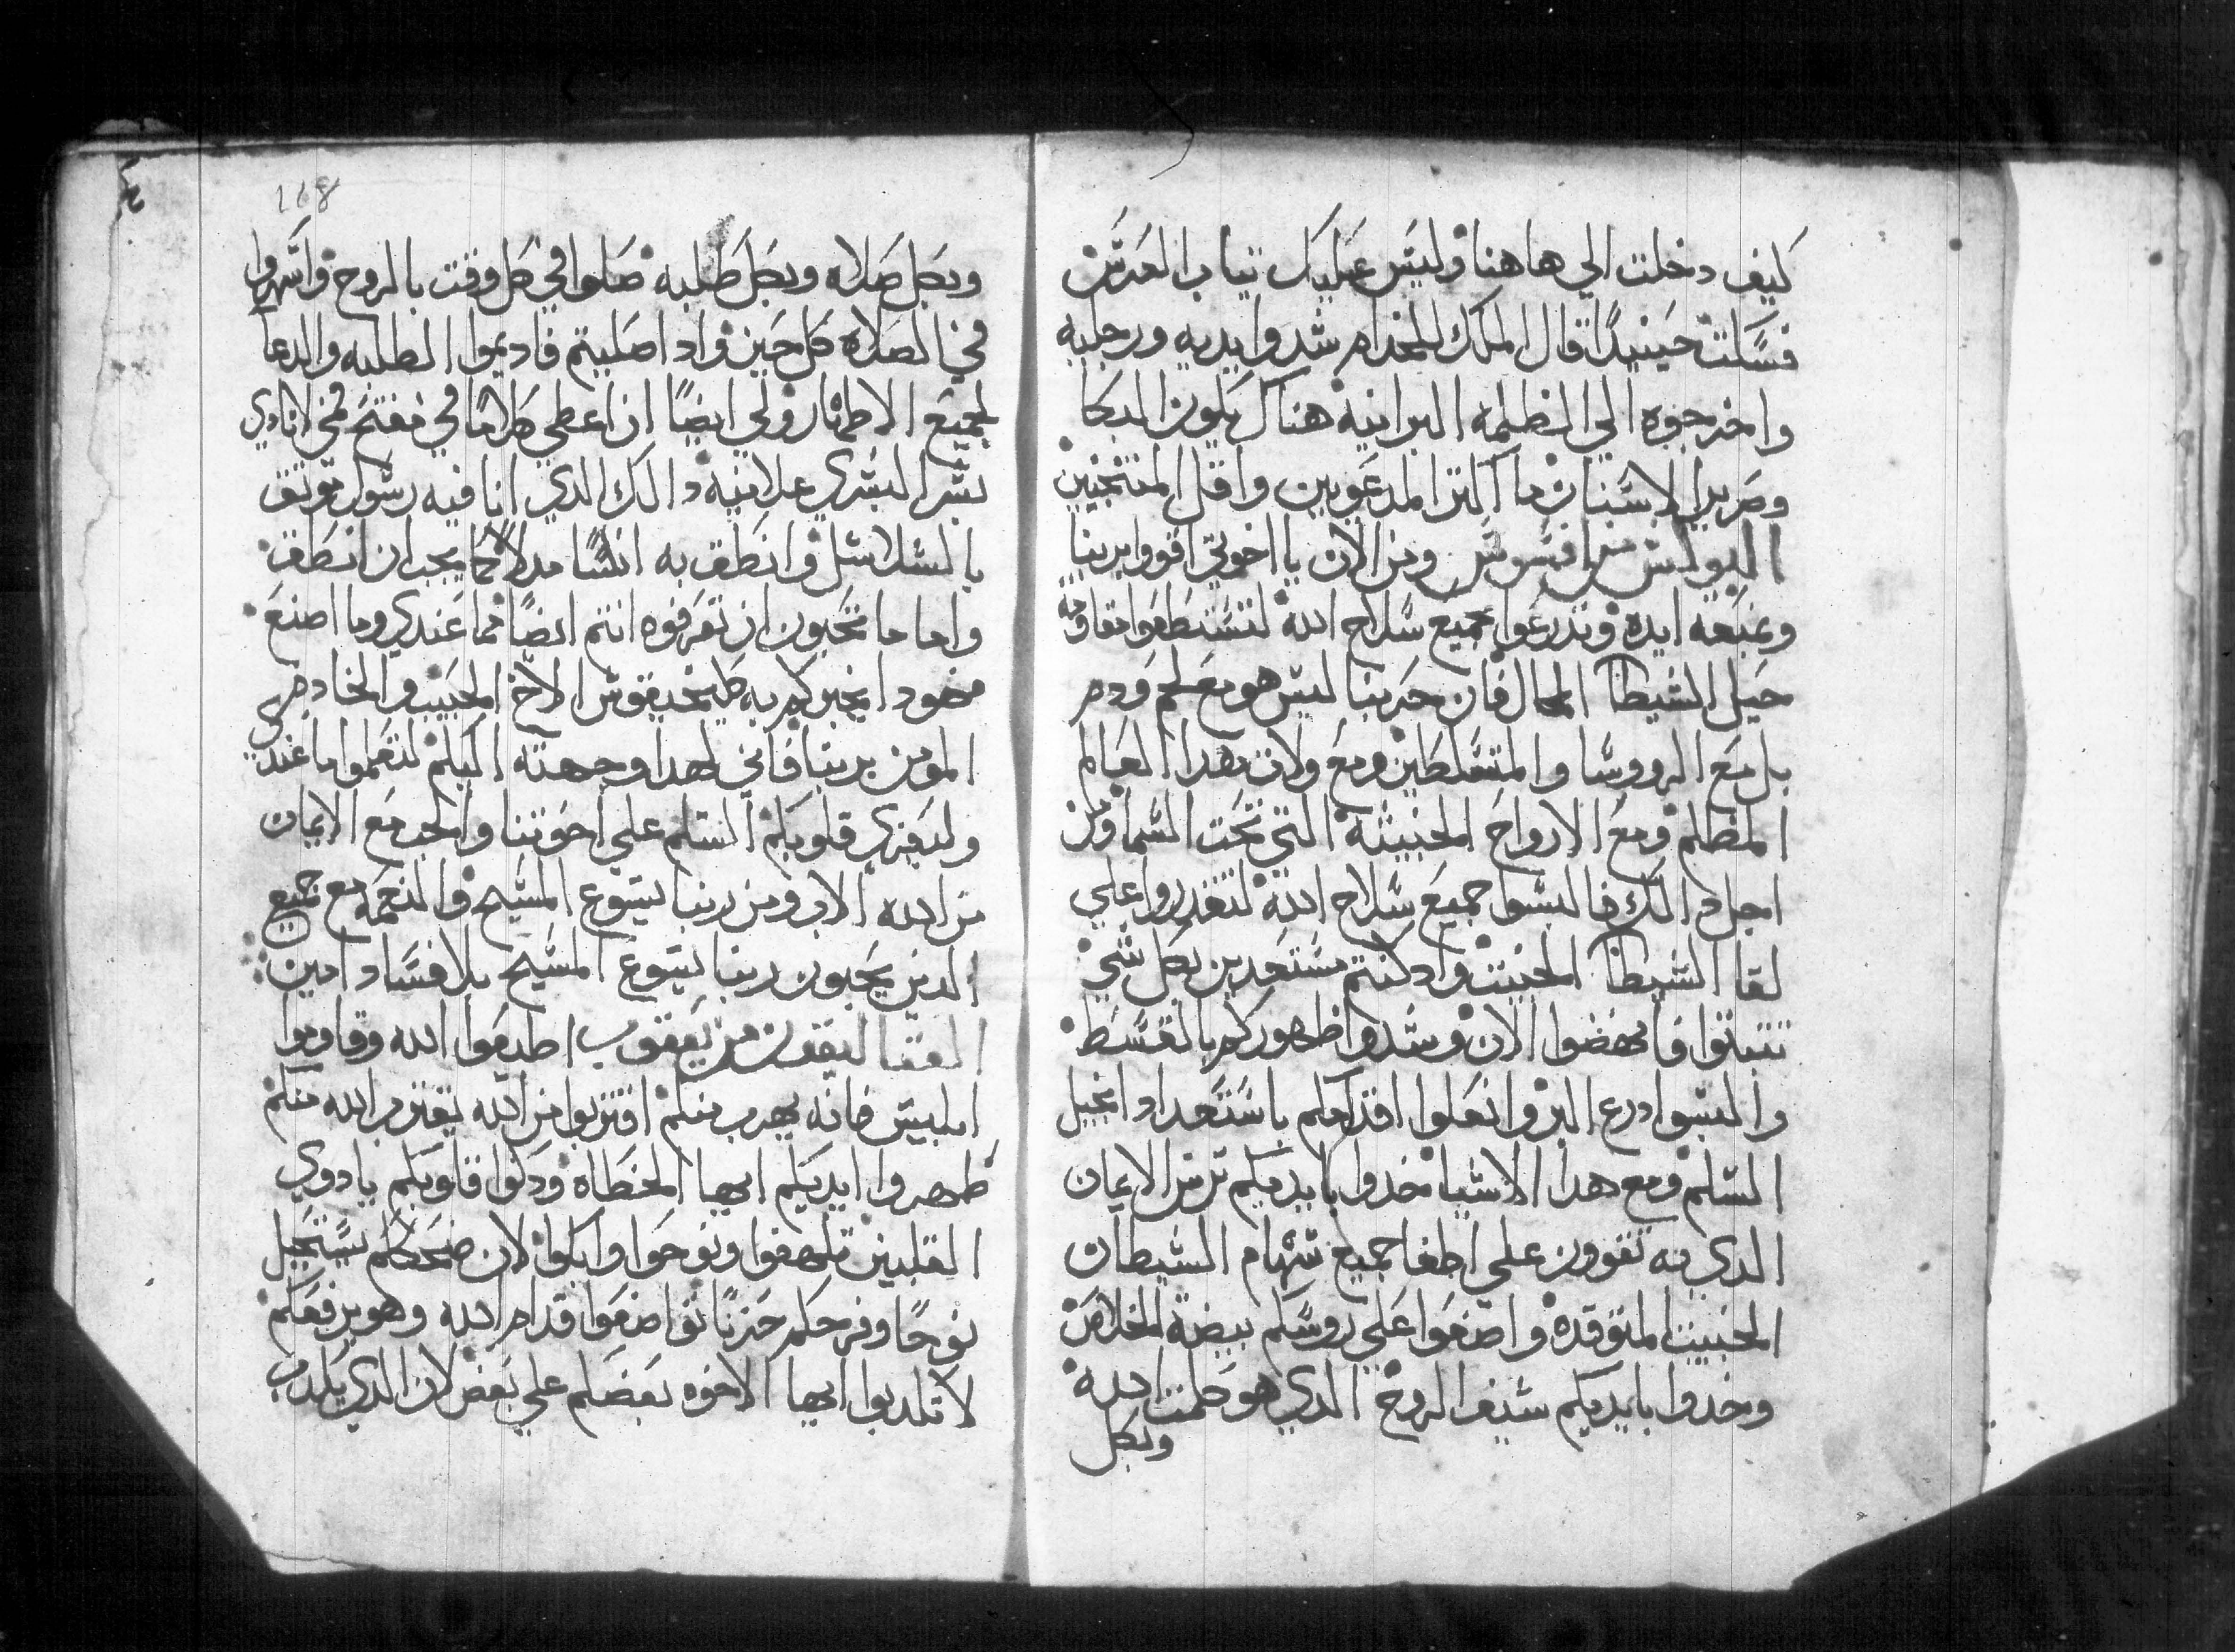 كيف دخلت الي هاهنا وليس عليك تياب العرس
فسكت حينيدًا قال الملك للخدام شدوا يديه ورجليه
واخرجوه الي الظلمه البرانيه هناك يكون البكا
وصرير الاسنان ما اكتر المدعوين واقل المنتخبين
البولس من افسوس ومن الان يا اخوتي اقووا بربنا
وبمنعة ايده وتدرعوا بجميع سلاح الله لتستطعوا مقاومه
حيل الشيطان المحال فان حربنا ليس هو مع لحم ودم
بل مع الرووسا والمتسلطين ومع ولات هدا العالم
المظلم ومع الارواح الخبيثة التي تحت السما ومن
اجل دالك فالبسوا جميع سلاح الله لتقدروا علي
لقا الشيطان الخبيت واد كنتم مستعدين بكل شي
تتبتوا فانهضوا الان وشدوا ظهوركم بالقسط
والبسوا درع البر وانعلوا اقدامكم باستعداد انجيل
السلم ومع هدا الاشيا خدوا بايديكم ترس الايمان
الدي به تقوون علي اطفا جميع سهام الشيطان
الخبيت المتوقده واضعوا علي روسكم بيضة الخلاص
وخدوا بايديكم سيف الروح الدي هو كلمت الله
وبكل
118
وبكل صلاه وبكل طلبه صلوا في كل وقت بالروح واسهروا
في الصلاه كل حين واد اصليتم فاديموا الطلبه والدعا
لجميع الاطهار ولي ايضًا ان اعطي كلامًا في مفتح فمي لانادي
بشر البشري علانيه دالك الدي انا فيه رسول موتق
بالسلاسل وانطق به انسًا مدلاً كما يجب ان انطق
واما ما تحبون ان تعرفوه انتم ايضًا مما عندي وما اصنع
فهودا يخبركم به طيخيقوس الاخ الحبيب والخادم
المومن بربنا فاني لهدا وجهته اليكم لتعلموا ما عندي
وليعزي قلوبكم السلم علي اخوتنا والحب مع الايمان
من الله الاب ومن ربنا يسوع المسيح والنعمه مع جميع
الدين يحبون ربنا يسوع المسيح بلا فساد امين
القتاليقون من يعقوب اطيعوا الله وقاوموا
ابليس فانه يهرب منكم اقتربوا من الله يقترب الله منكم
طهروا ايديكم ايها الخطاه ودكوا قلوبكم يا دوي
القلبين تلهفوا ونوحوا وابكوا لان ضحككم يستحيل
نوحًا وفرحكم حزنًا تواضعوا قدام الله وهو يرفعكم
لا تكدبوا ايها الاخوه بعضكم علي بعض لان الدي يكدب